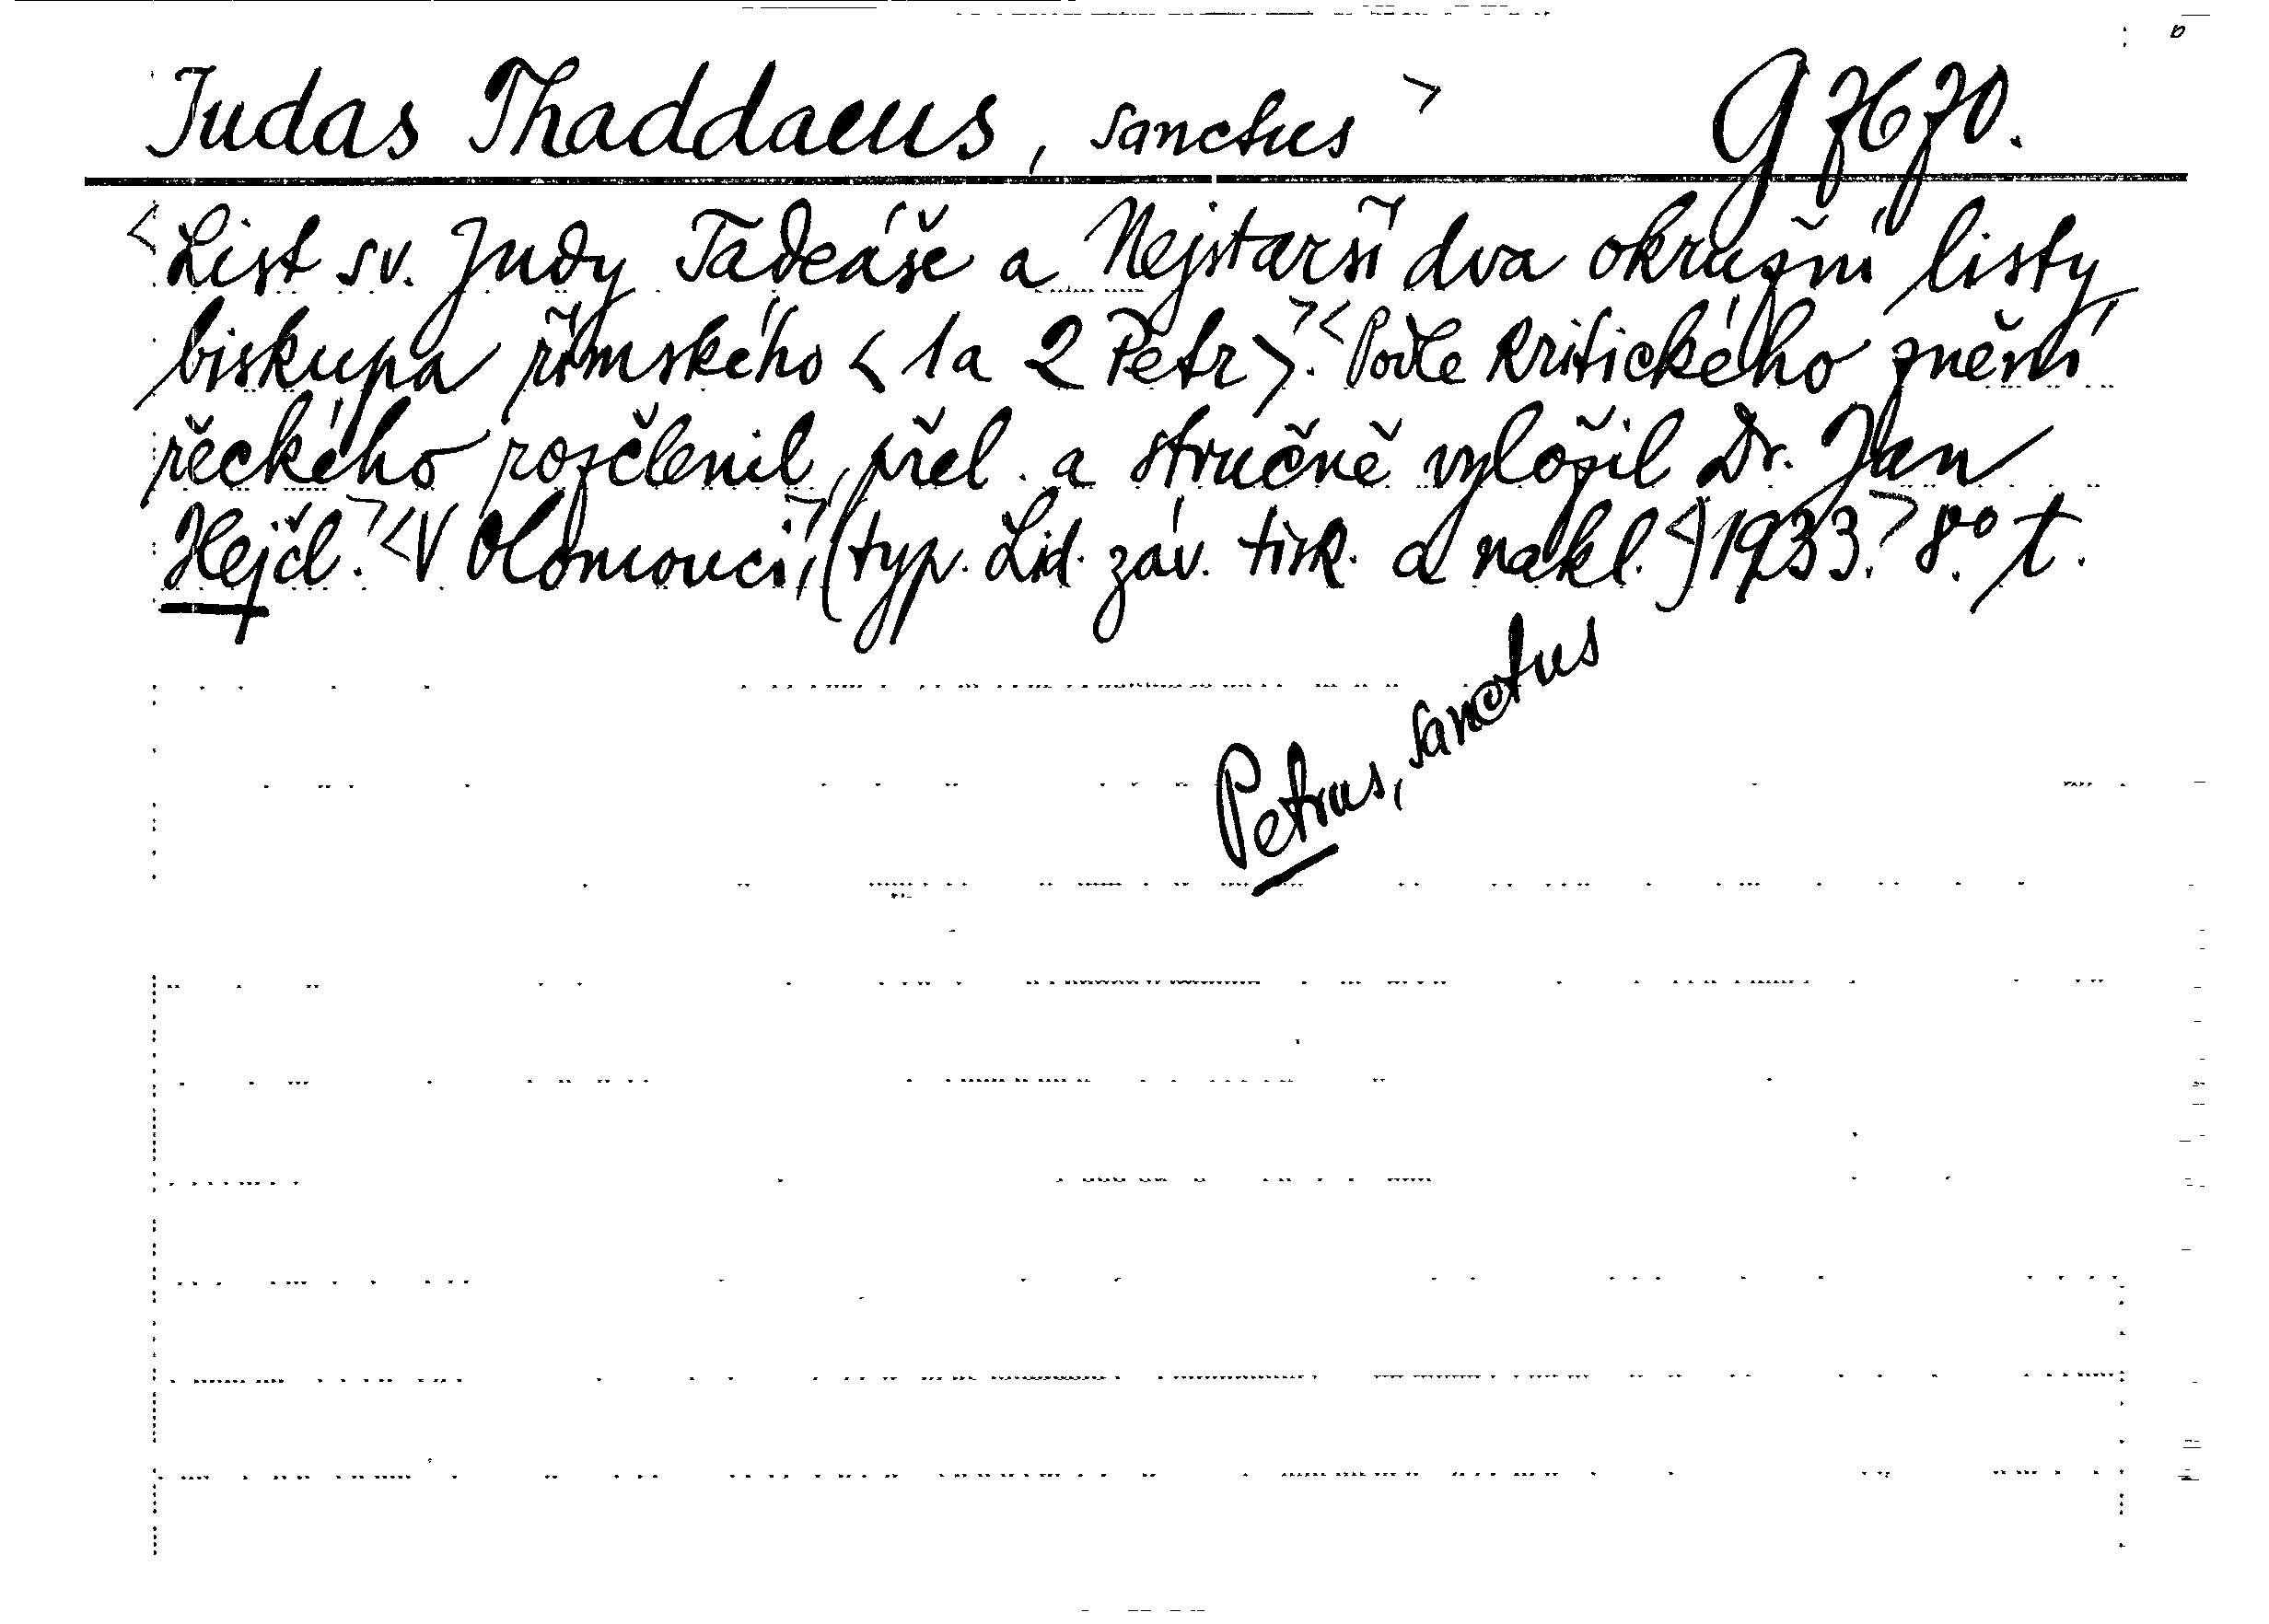 Judas Thaddaeus, sanctus > G 7670.
<List sv. Judy Tadeáše a Nejstarší dva okružní listy
biskupa římského <1a 2 Petr>.><Podle kritického znění
řeckého rozčlenil, přel. a stručně vyložil Dr. Jan
Hejčl.><V Olomouci,>(typ. Lid. záv. tisk. a nakl.<)1933.> 8.º t.
Petrus, sanctus